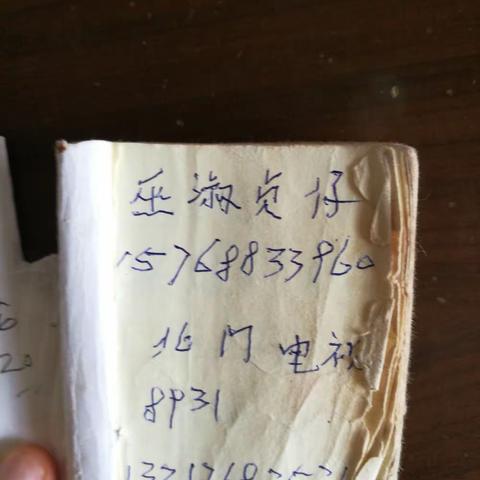 巫淑贞仔
15768833960
北门电视
8931
20